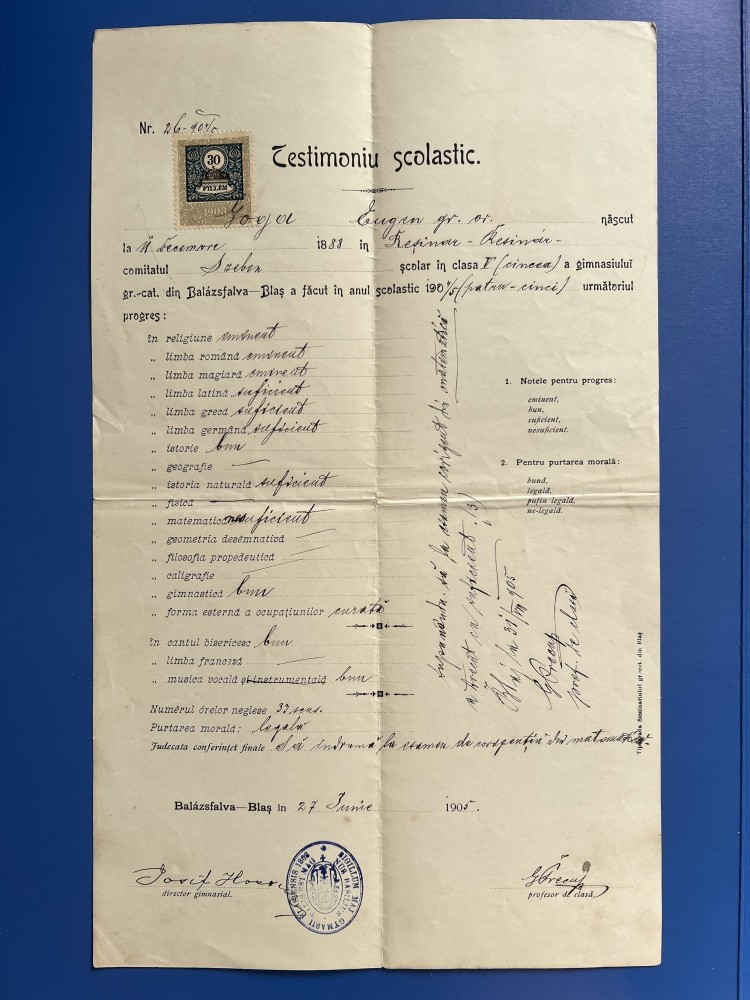 Nr. 26-904/5
30
FILLÉR
1903
Testimoniu şcolastic.
Goga Eugen gr. or. născut
la 11 Decembre 1888 în Reşinar - Resinár -
comitatul Szeben şcolar în clasa V (cincea) a gimnasiului
gr.-cat. din Balázsfalva—Blaş a făcut în anul şcolastic 1904/5 (patru-cinci) următoriul
progres:
în religiune eminent
„ limba română eminent
„ limba magiară eminent
„ limba latină suficient
„ limba greca suficient
„ limba germână suficient
„ istorie bun
„ geografie —
„ istoria naturală suficient
„ fisica —
„ matematica nesuficient
„ geometria desémnativă —
„ filosofia propedeutică —
„ caligrafie —
„ gimnastică bun
„ forma esternă a ocupaţiunilor curată
în cantul bisericesc bun
„ limba franceză —
„ musica vocală şi instrumentală bun
Numĕrul órelor neglese 33 scus.
Purtarea morală: legală
Judecata conferinţei finale Să îndrumă la esamen de corigenţă din matematică.
1. Notele pentru progres:
eminent,
bun,
suficient,
nesuficient.
2. Pentru purtarea morală:
bună,
legală,
puţin legală,
ne-legală.
la esamen corigent din matematică
a trecut cu suficient (3)
Blaj la 31/VIII 905
GPrecup
prof. de clasă
Tipografia Seminariului gr.-cat. din Blaş
Balázsfalva—Blaş în 27 Iunie 1905.
Iosif Hossu
director gimnasial.
SIGILLUM MAJ. GYMNASII BLASIENSIS 1892
GPrecup
profesor de clasă